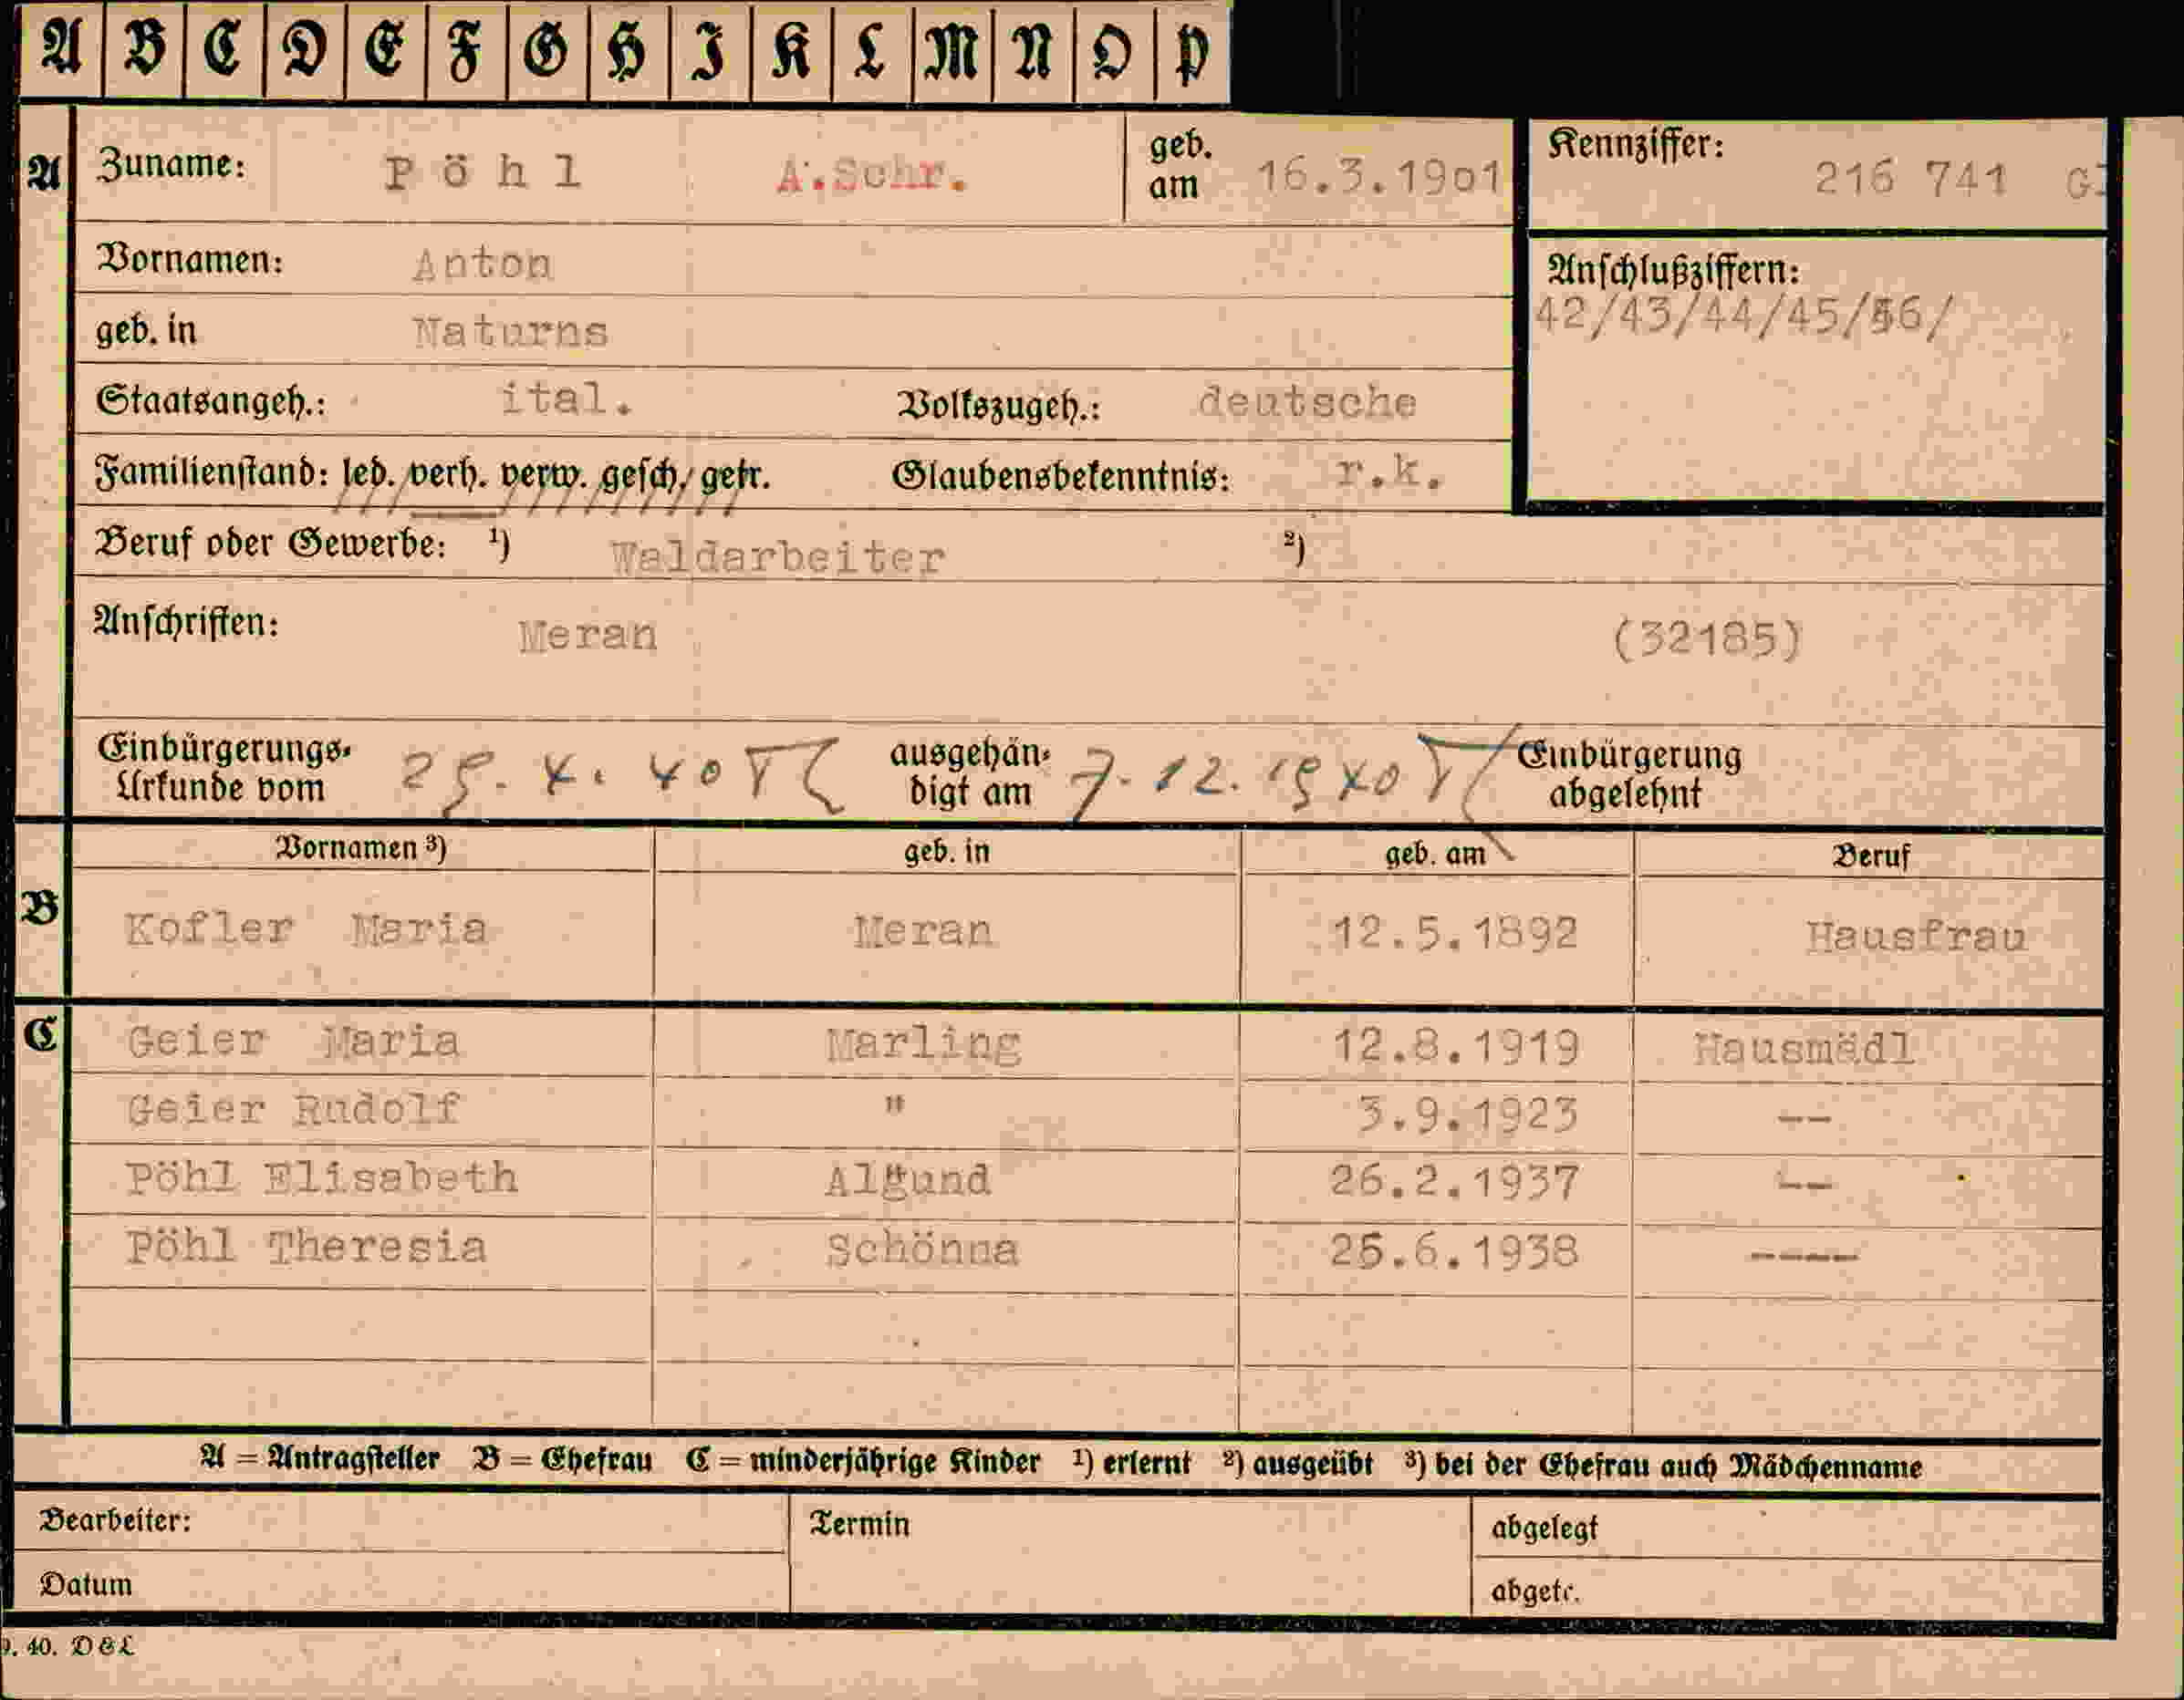 A B C D E F G H I K L M N O P
A Zuname: Pöhl A.Schr. geb. am 16.3.1901 Kennziffer: 216 741
Vornamen: Anton
Anschlußziffern:
42/43/44/45/46/
geb. in Naturns
Staatsangeh.: ital. Volkszugeh.: deutsche
Familienstand: led. verh. verw. gesch. getr. Glaubensbekenntnis: r.k.
Beruf oder Gewerbe: ¹) Waldarbeiter ²)
Anschriften: Meran (32185)
Einbürgerungs-Urkunde vom 40 ausgehändigt am 7.12.1940 Einbürgerung abgelehnt
Vornamen ³) geb. in geb. am Beruf
B Kofler Maria Meran 12.5.1892 Hausfrau
C Geier Maria Marling 12.8.1919 Hausmädl
Geier Rudolf " 3.9.1923 --
Pöhl Elisabeth Algund 26.2.1937 --
Pöhl Theresia Schönna 25.6.1938 ----
A = Antragsteller B = Ehefrau C = minderjährige Kinder ¹) erlernt ²) ausgeübt ³) bei der Ehefrau auch Mädchenname
Bearbeiter: Termin abgelegt
Datum abgetr.
9. 40. D & L